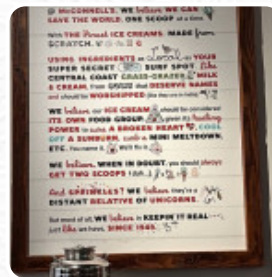 @ McCONNELL'S, WE believe WE CAN
SAVE THE WORLD. ONE SCOOP at a time.
With THE Finest ICE CREAMS. MADE from
SCRATCH.
USING INGREDIENTS as YOUR
SUPER SECRET SURF SPOT. like
CENTRAL COAST GRASS-GRAZED MILK
& CREAM, from that DESERVE NAMES
and should be WORSHIPPED
WE believe our ICE CREAM should be considered
ITS OWN FOOD GROUP, given its
POWER to solve A BROKEN HEART, COOL
OFF A SUNBURN, a MINI MELTDOWN,
ETC. You name it.
WE believe, WHEN IN DOUBT, you should always
GET TWO SCOOPS
And SPRINKLES? WE believe they're a
DISTANT RELATIVE OF UNICORNS.
But most of all, WE believe in KEEPIN IT REAL
just like we have, SINCE 1949.